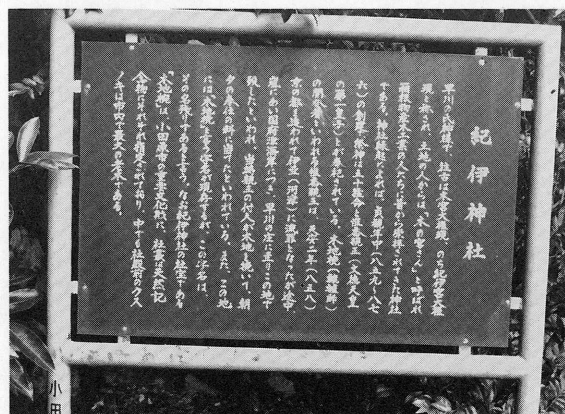 紀伊神社
早川の氏神様で、往古は木宮大権現、のち紀伊宮大権
現と称され、土地の人からは「木の宮さん」と呼ばれ
箱根物産木工業の人たちに昔から崇拝されてきた神社
である。神社縁起によれば、貞観年中(八五九〜八七
六)の創祭、祭神は五十猛命と惟喬親王(文徳天皇
の第一皇子)とが奉祀されている。木地挽(轆轤師)
の開祖といわれる惟喬親王は、天安二年(八五八)
京の都を追われて伊豆(河津)に流罪となったが途中、
嵐にあい国府津海岸につき、早川の庄に至りこの地で
歿したといわれ、当時親王の付人が木地を挽いて、朝
夕の奉座の料に当てたといわれている。また、この地
には、木地挽と言う字名が現存するが、この字名は、
その名残りであると言う。なお紀伊神社の社宝である
「木地椀」は、小田原市の重要文化財に、社叢は天然記
念物にそれぞれ指定されており、中でも社殿前のクス
ノキは市内で最大の巨木である。
小田